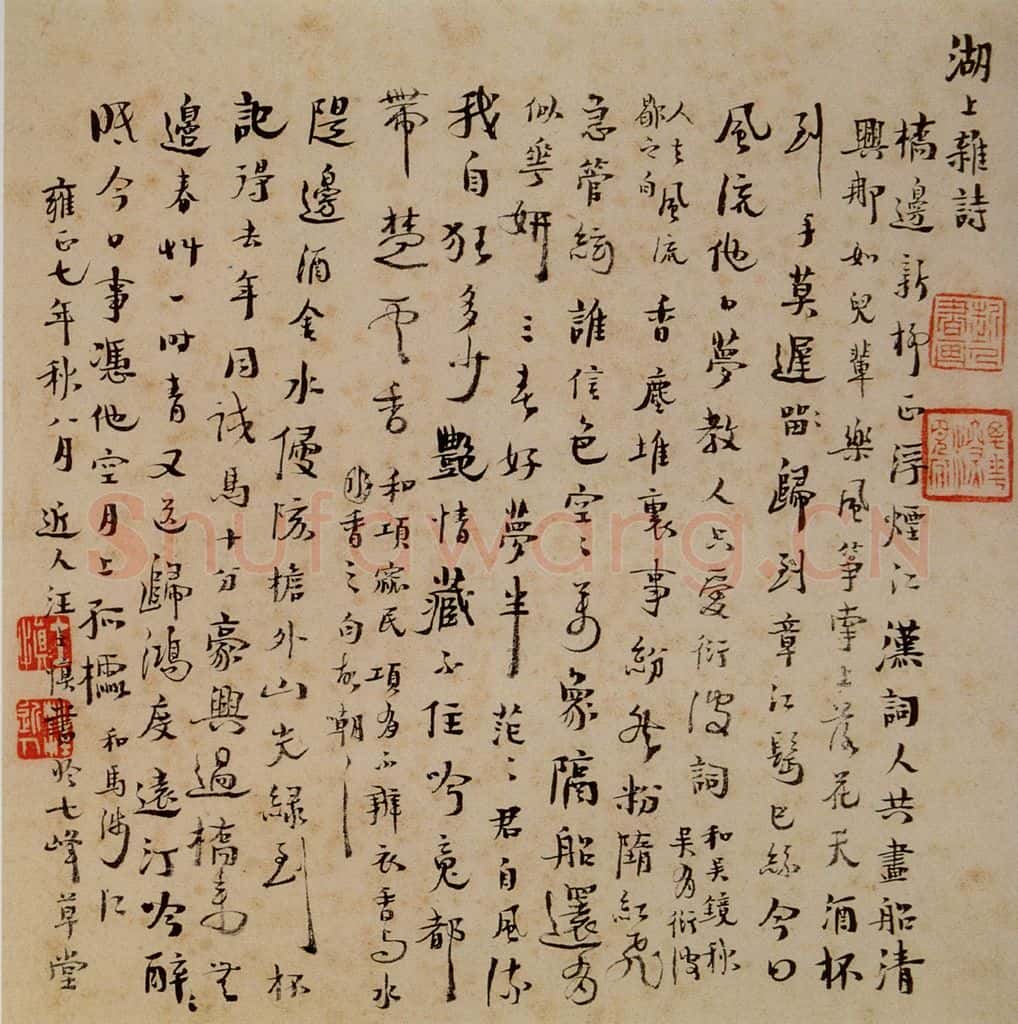 湖上雜詩
橋邊新柳正浮煙江漢詞人共畫船清
興那如兒輩樂風箏上落花天酒杯
到手莫遲留歸到章江鬢已絲今日
風流他日夢教人只愛衍波詞 和吳鏡秋
吳有衍波
人去風流
歇之句
香塵堆裏事紛粉隋紅飛
急管絃誰信色空〻萬象隔船還為
似華妍三〻春好夢半茫〻君自風流
我自狂多少艷情藏不住吟竟都
帶楚雲香 和項民項有不辨衣香与水
香之句
隄邊酒舍水侵階檐外山光綠到杯
記得去年同試馬十分豪興過橋來
邊春艸一時青又送歸鴻度遠汀吟醉〻
眠今日事憑他空月上孤櫺 和馬涉江
雍正七年秋八月近人汪士慎書於七峰草堂
Shufawang.CN